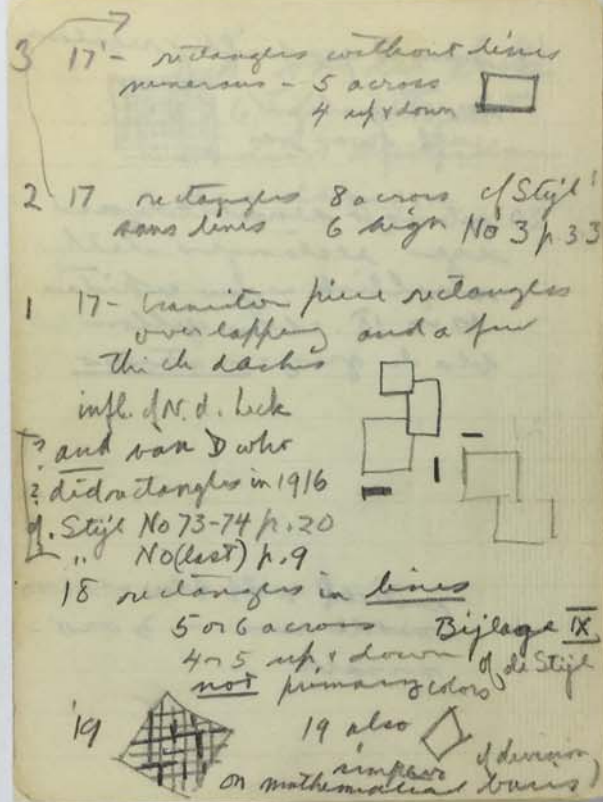 3 17 - rectangles without lines
numerous - 5 across
4 up & down
2 17 rectangles 8 across cf Stijl
sans lines 6 high No 3 p. 33
1 17 - transition piece rectangles
overlapping and a few
thick dashes
infl. of V. d. Leck
? and van D who
? did rectangles in 1916
cf. Stijl No 73-74 p. 20
" No (last) p. 9
18 rectangles in lines
5 or 6 across Bijlage IX
4 or 5 up & down of de Stijl
not primary colors
'19 19 also
simpler of division
on mathematical basis